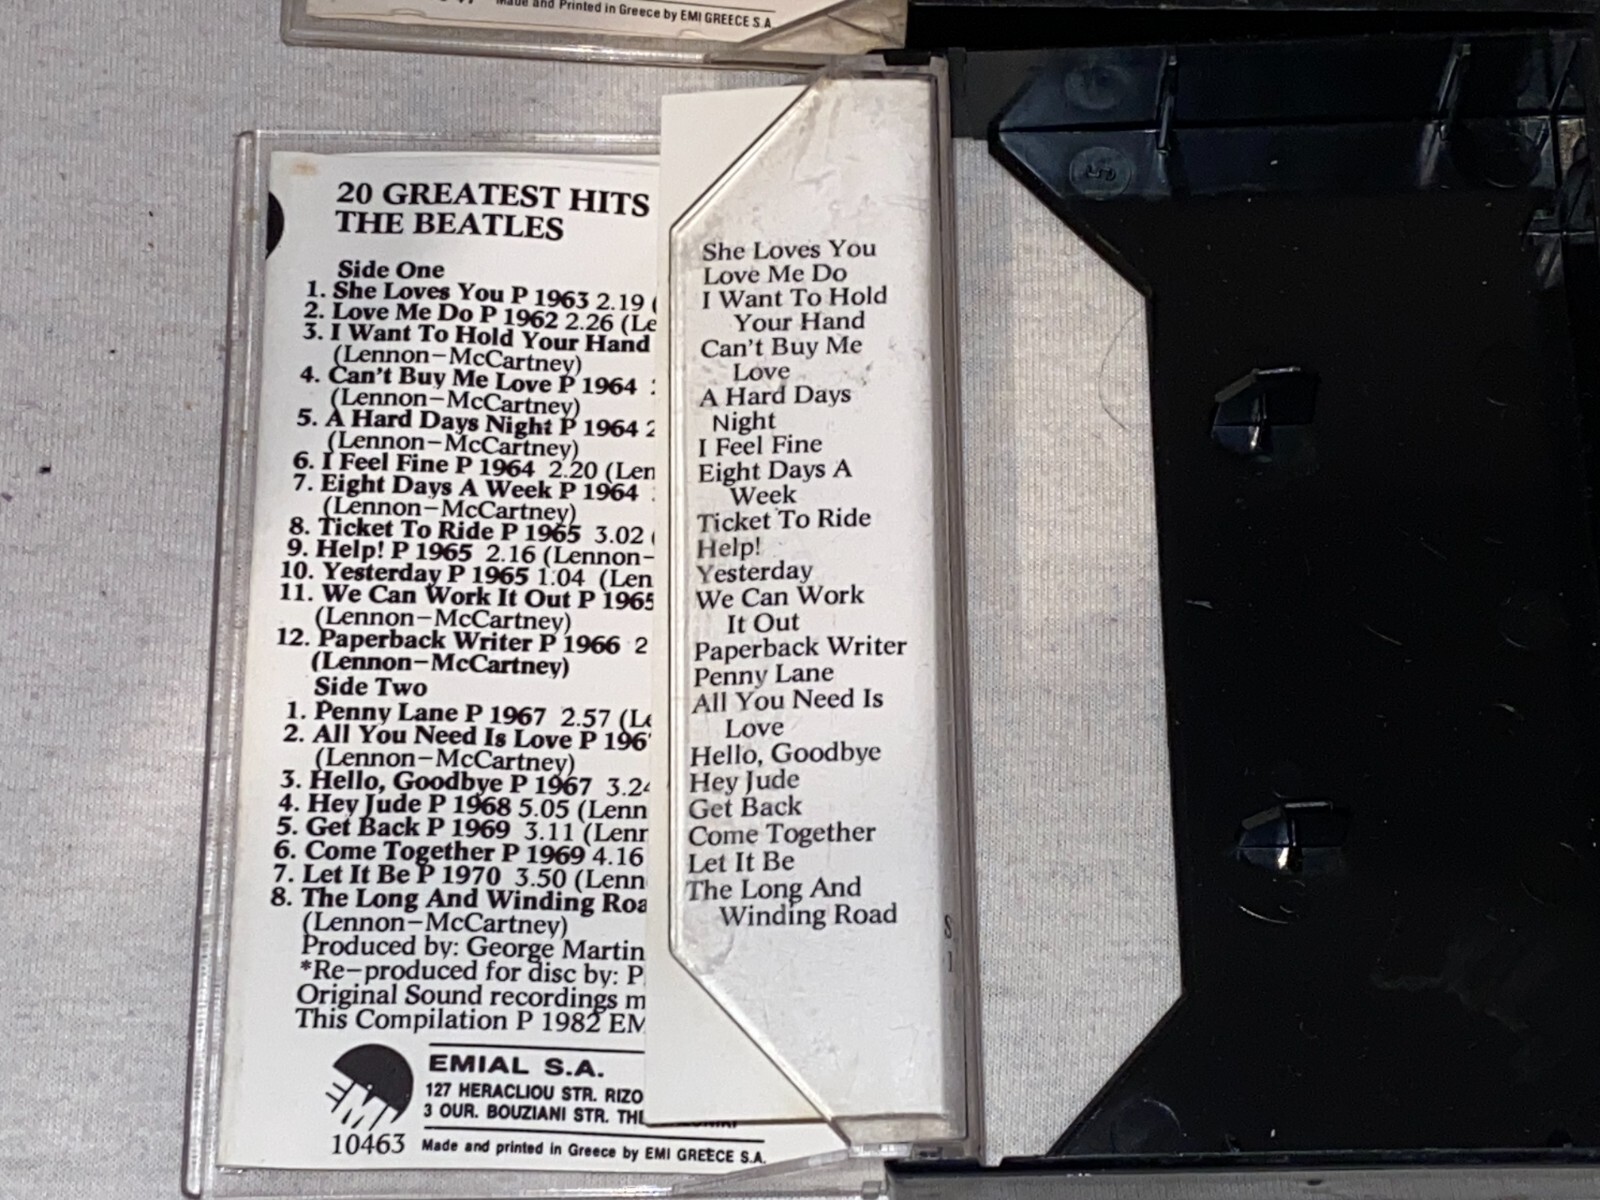 Made and Printed in Greece by EMI GREECE S.A.
20 GREATEST HITS
THE BEATLES
Side One
1. She Loves You P 1963 2.19 (
2. Love Me Do P 1962 2.26 (Le
3. I Want To Hold Your Hand
(Lennon-McCartney)
4. Can't Buy Me Love P 1964
(Lennon-McCartney)
5. A Hard Days Night P 1964 2
(Lennon-McCartney)
6. I Feel Fine P 1964 2.20 (Len
7. Eight Days A Week P 1964
(Lennon-McCartney)
8. Ticket To Ride P 1965 3.02 (
9. Help! P 1965 2.16 (Lennon-
10. Yesterday P 1965 1.04 (Len
11. We Can Work It Out P 1965
(Lennon-McCartney)
12. Paperback Writer P 1966 2
(Lennon-McCartney)
Side Two
1. Penny Lane P 1967 2.57 (Le
2. All You Need Is Love P 196
(Lennon-McCartney)
3. Hello, Goodbye P 1967 3.24
4. Hey Jude P 1968 5.05 (Lenn
5. Get Back P 1969 3.11 (Lenn
6. Come Together P 1969 4.16
7. Let It Be P 1970 3.50 (Lenn
8. The Long And Winding Roa
(Lennon-McCartney)
Produced by: George Martin
*Re-produced for disc by: P
Original Sound recordings m
This Compilation P 1982 EM
EMIAL S.A.
127 HERACLIOU STR. RIZO
3 OUR. BOUZIANI STR. THE
10463 Made and printed in Greece by EMI GREECE S.A.
She Loves You
Love Me Do
I Want To Hold
Your Hand
Can't Buy Me
Love
A Hard Days
Night
I Feel Fine
Eight Days A
Week
Ticket To Ride
Help!
Yesterday
We Can Work
It Out
Paperback Writer
Penny Lane
All You Need Is
Love
Hello, Goodbye
Hey Jude
Get Back
Come Together
Let It Be
The Long And
Winding Road